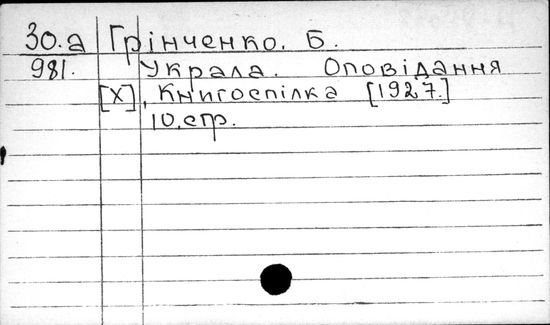 30.a Грінченко. Б.
981. Украла. Оповідання
[X], Книгоспілка [1927.]
10.стр.